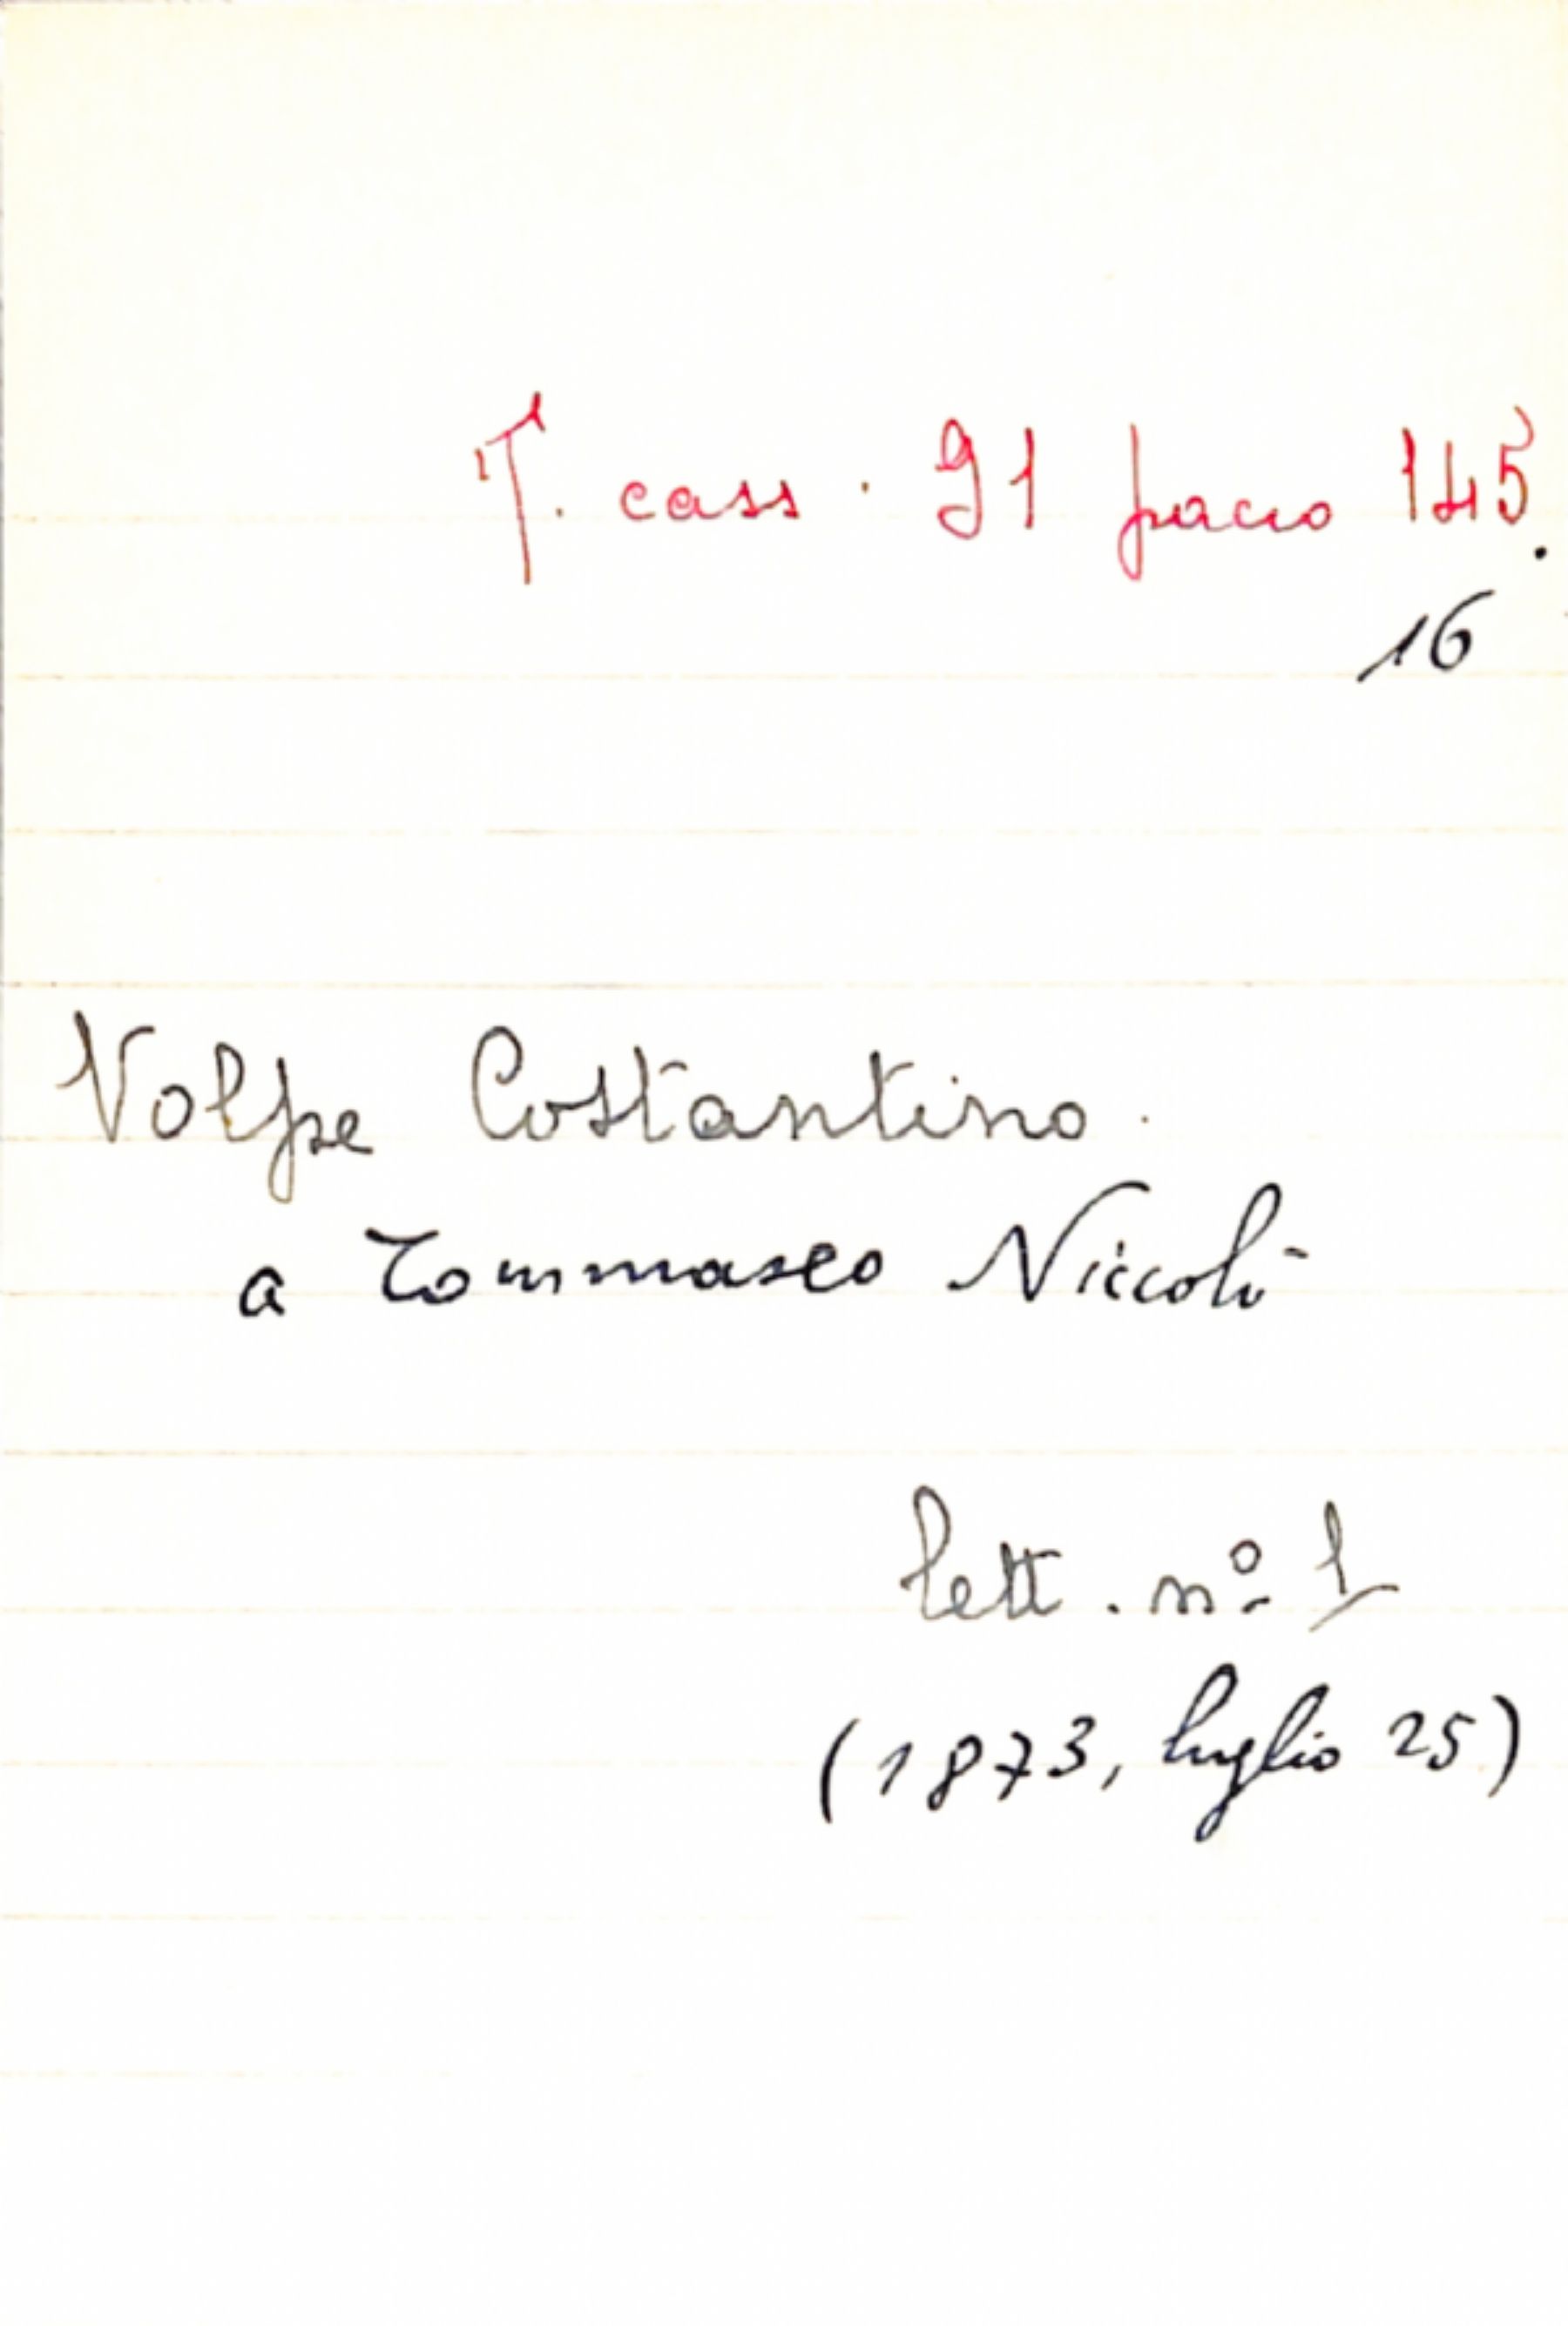 T. cass. 91 pacco 145.
16
Volpe Costantino.
a Tommaseo Niccolò
lett. nº 1
(1873, luglio 25)